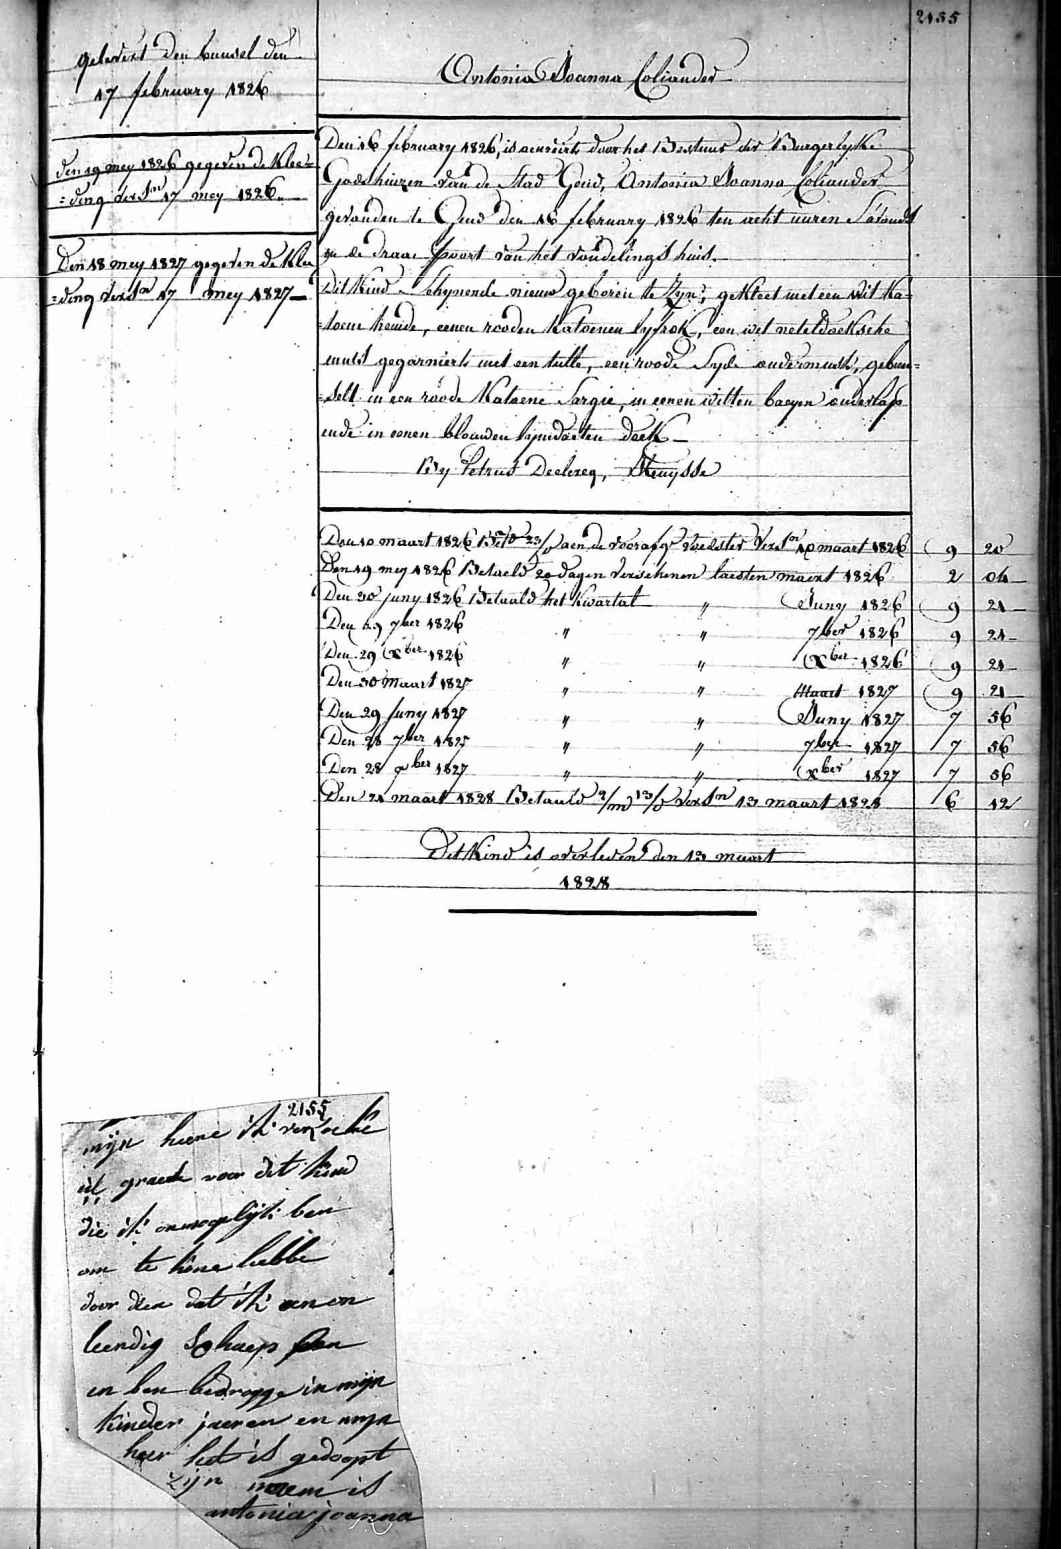 2155
gelevert den bundel den
17 february 1826
den 19 mey 1826 gegeven de klee=
=ding versn 17 mey 1826.
Den 18 mey 1827 gegeven de klee
=ding versn 17 mey 1827
Antonia Joanna Coliander
Den 16 february 1826, is aenveirt door het Bestuur der Burgerlyke
Godshuizen van de Stad Gend, Antonia Joanna Coliander
gevonden te Gend den 16 february 1826 ten acht uuren S'avonds
in de draai poort van het vondelings huis.
Dit Kind Schynende nieuw geboren te Zyn, gekleet met een wit ka=
=toene hemde, eenen rooden katoenen lyfrok, een wit neteldoeksche
muts gegarniert met een tulle, een roode Syde ondermuts, gebun=
=delt in een roode Katoene Sargie, in eenen witten baeyen onderlap
ende in eenen blauwen lynwaeten doek
By Petrus Declercq,
Den 10 maart 1826 aen de voorafge voedster versn 10 maart 1826 9 20
Den 19 mey 1826 Betaeld 20 dagen verschenen laesten maert 1826 2 04
Den 30 juny 1826 Betaald het kwartal " Juny 1826 9 21
Den 29 7ber 1826 " " 7ber 1826 9 21
Den 29 Xber 1826 " " Xber 1826 9 21
Den 30 maart 1827 " " Maart 1827 9 21
Den 29 Juny 1827 " " Juny 1827 7 56
Den 28 7ber 1827 " " 7ber 1827 7 56
Den 28 xber 1827 " " Xber 1827 7 56
Den 21 maart 1828 Betaald 2/m 13/d versn 13 maart 1828 6 12
Dit Kind is overleden den 13 maart
1828
2155
mijn heere ik verzoeke
ul graede voor dit kind
die ik onmogelijk ben
om te kone hebbe
door dien dat ik en en
leendig Schaep ben
en ben bedroge in mijn
kinder jaeren en mijn
heer het is gedoopt
zijn naem is
antonia joanna